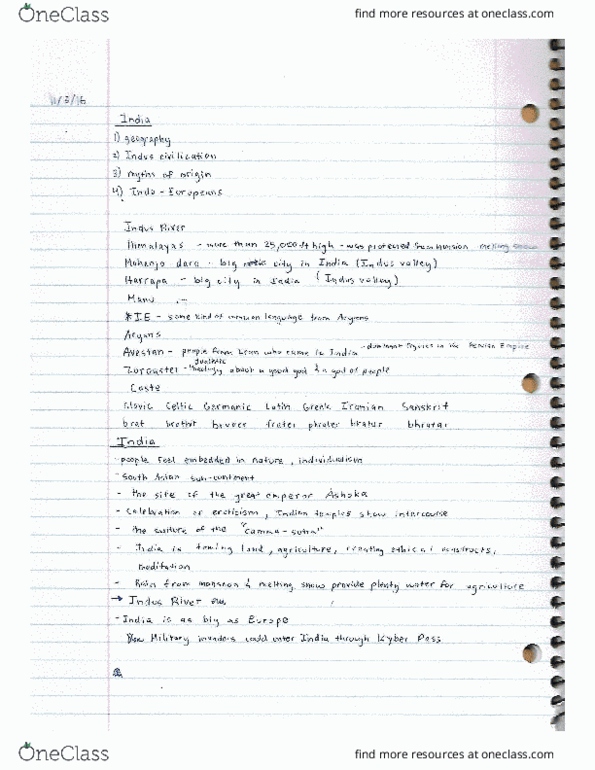 OneClass
find more resources at oneclass.com
11/3/16
India
1) geography
2) Indus civilication
3) myths of origin
4) Indo - Europeans
Indus River
Himalayas - more than 25,000 ft high - was protected from invasion melting snow
Mohenjo daro - big city in India (Indus valley)
Harrapa - big city in India (Indus valley)
Manu
*I.E - some kind of common language from Aryans
Aryans
Avestan - people from Iran who came to India - dominant figures in the Persian Empire
Zoroaster - dualistic theology about a good god & a god of people
Caste
Slavic Celtic Germanic Latin Greek Iranian Sanskrit
brat brathir frater phrater bratar bhratar
India
- people feel embedded in nature, individualism
- South Asian sub-continent
- the site of the great emperor Ashoka
- celebration of eroticism, Indian temples show intercourse
- the culture of the "camma-sutra"
- India is land, agriculture, creating ethical constructs,
meditation
- Rain from monsoon & melting snow provide plenty water for agriculture
→ Indus River
- India is as big as Europe
Military invaders could enter India through Kyber Pass
OneClass
find more resources at oneclass.com